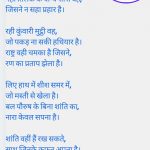 जिसने न सहा प्रहार है।
रही कुंवारी मुट्ठी वह,
जो पकड़ ना सकी हथियार है।
राष्ट्र वही चमका है जिसने,
रण का प्रताप झेला है।
लिए हाथ में शीश समर में,
जो मस्ती से खेला है।
बल पौरुष के बिना शांति का,
नारा केवल सपना है।
शांति वहीं हैं रख सकते,